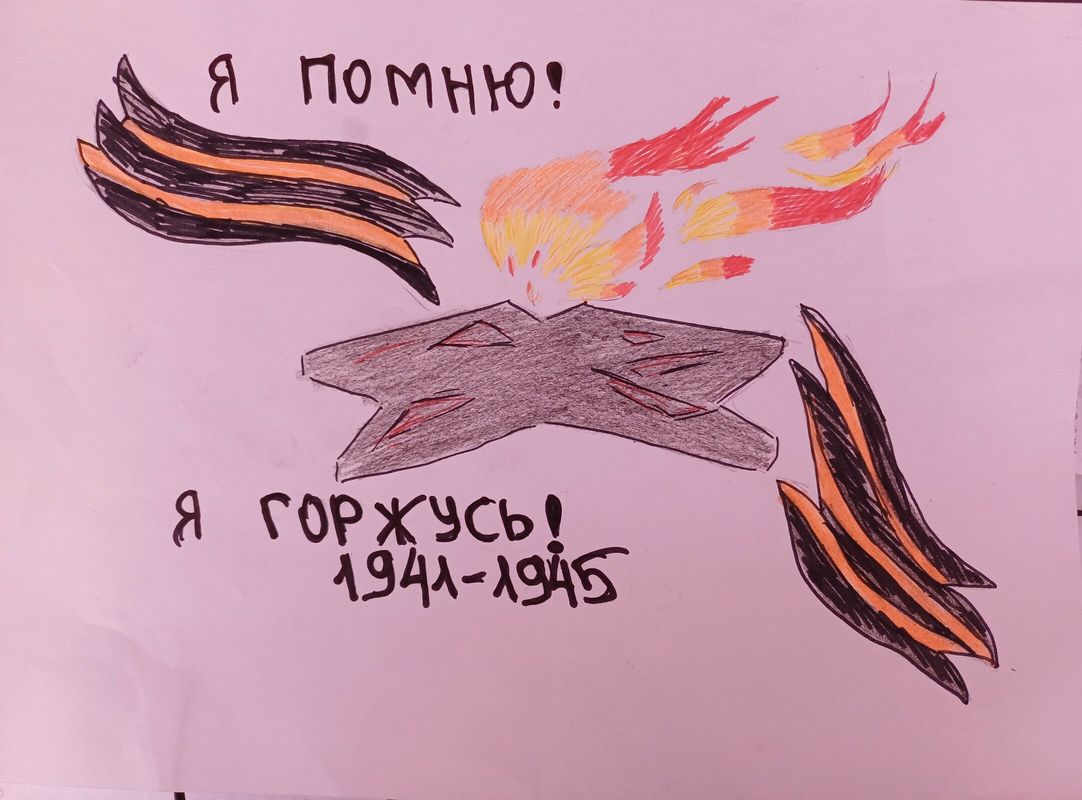 Я ПОМНЮ!
Я ГОРЖУСЬ!
1941-1945